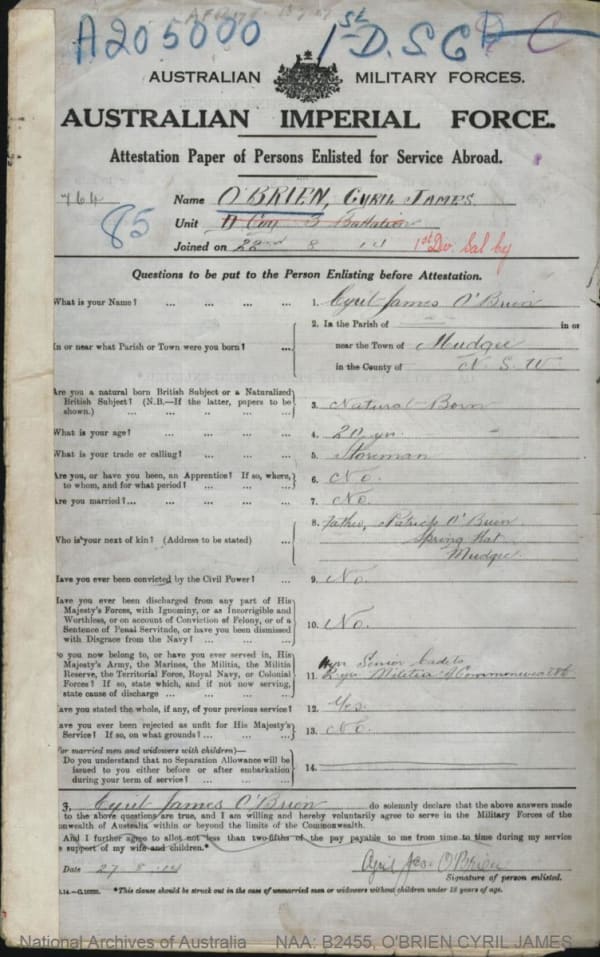 A205000 1st D.S.C
AUSTRALIAN MILITARY FORCES.
AUSTRALIAN IMPERIAL FORCE.
Attestation Paper of Persons Enlisted for Service Abroad.
764
85
Name O'BRIEN, Cyril James
Unit D Coy 3 Battalion
Joined on 22nd 8 14 1st Div. Sal by
Questions to be put to the Person Enlisting before Attestation.
What is your Name? ... ... ... ... 1. Cyril James O'Brien
2. In the Parish of in or
In or near what Parish or Town were you born? ... near the Town of Mudgee
in the County of N S W
Are you a natural born British Subject or a Naturalized
British Subject? (N.B.—If the latter, papers to be
shown.) ... ... ... ... 3. Natural-Born
What is your age? ... ... ... ... 4. 20 yrs
What is your trade or calling? ... ... ... 5. Storeman
Are you, or have you been, an Apprentice? If so, where,
to whom, and for what period? ... ... ... 6. No.
Are you married? ... ... ... ... ... 7. No.
8. Father, Patrick O'Brien
Who is your next of kin? (Address to be stated) ... Spring Flat
Mudgee
Have you ever been convicted by the Civil Power? ... 9. No.
Have you ever been discharged from any part of His
Majesty's Forces, with Ignominy, or as Incorrigible and
Worthless, or on account of Conviction of Felony, or of a
Sentence of Penal Servitude, or have you been dismissed
with Disgrace from the Navy? ... ... ... 10. No.
Do you now belong to, or have you ever served in, His
Majesty's Army, the Marines, the Militia, the Militia
Reserve, the Territorial Force, Royal Navy, or Colonial
Forces? If so, state which, and if not now serving,
state cause of discharge ... ... ...
Senior Cadets
11. Militia
Have you stated the whole, if any, of your previous service? 12. Yes.
Have you ever been rejected as unfit for His Majesty's
Service? If so, on what grounds? ... ... 13. No.
(For married men and widowers with children)—
Do you understand that no Separation Allowance will be
issued to you either before or after embarkation
during your term of service? ... ... ... 14.
I, Cyril James O'Brien do solemnly declare that the above answers made
to the above questions are true, and I am willing and hereby voluntarily agree to serve in the Military Forces of the
Commonwealth of Australia within or beyond the limits of the Commonwealth.
And I further agree to allot not less than two-fifths of the pay payable to me from time to time during my service
support of my wife and children.*
Date 27 . 8 . 14 Cyril Jas O'Brien
Signature of person enlisted.
*This clause should be struck out in the case of unmarried men or widowers without children under 18 years of age.
National Archives of Australia NAA: B2455, O'BRIEN CYRIL JAMES